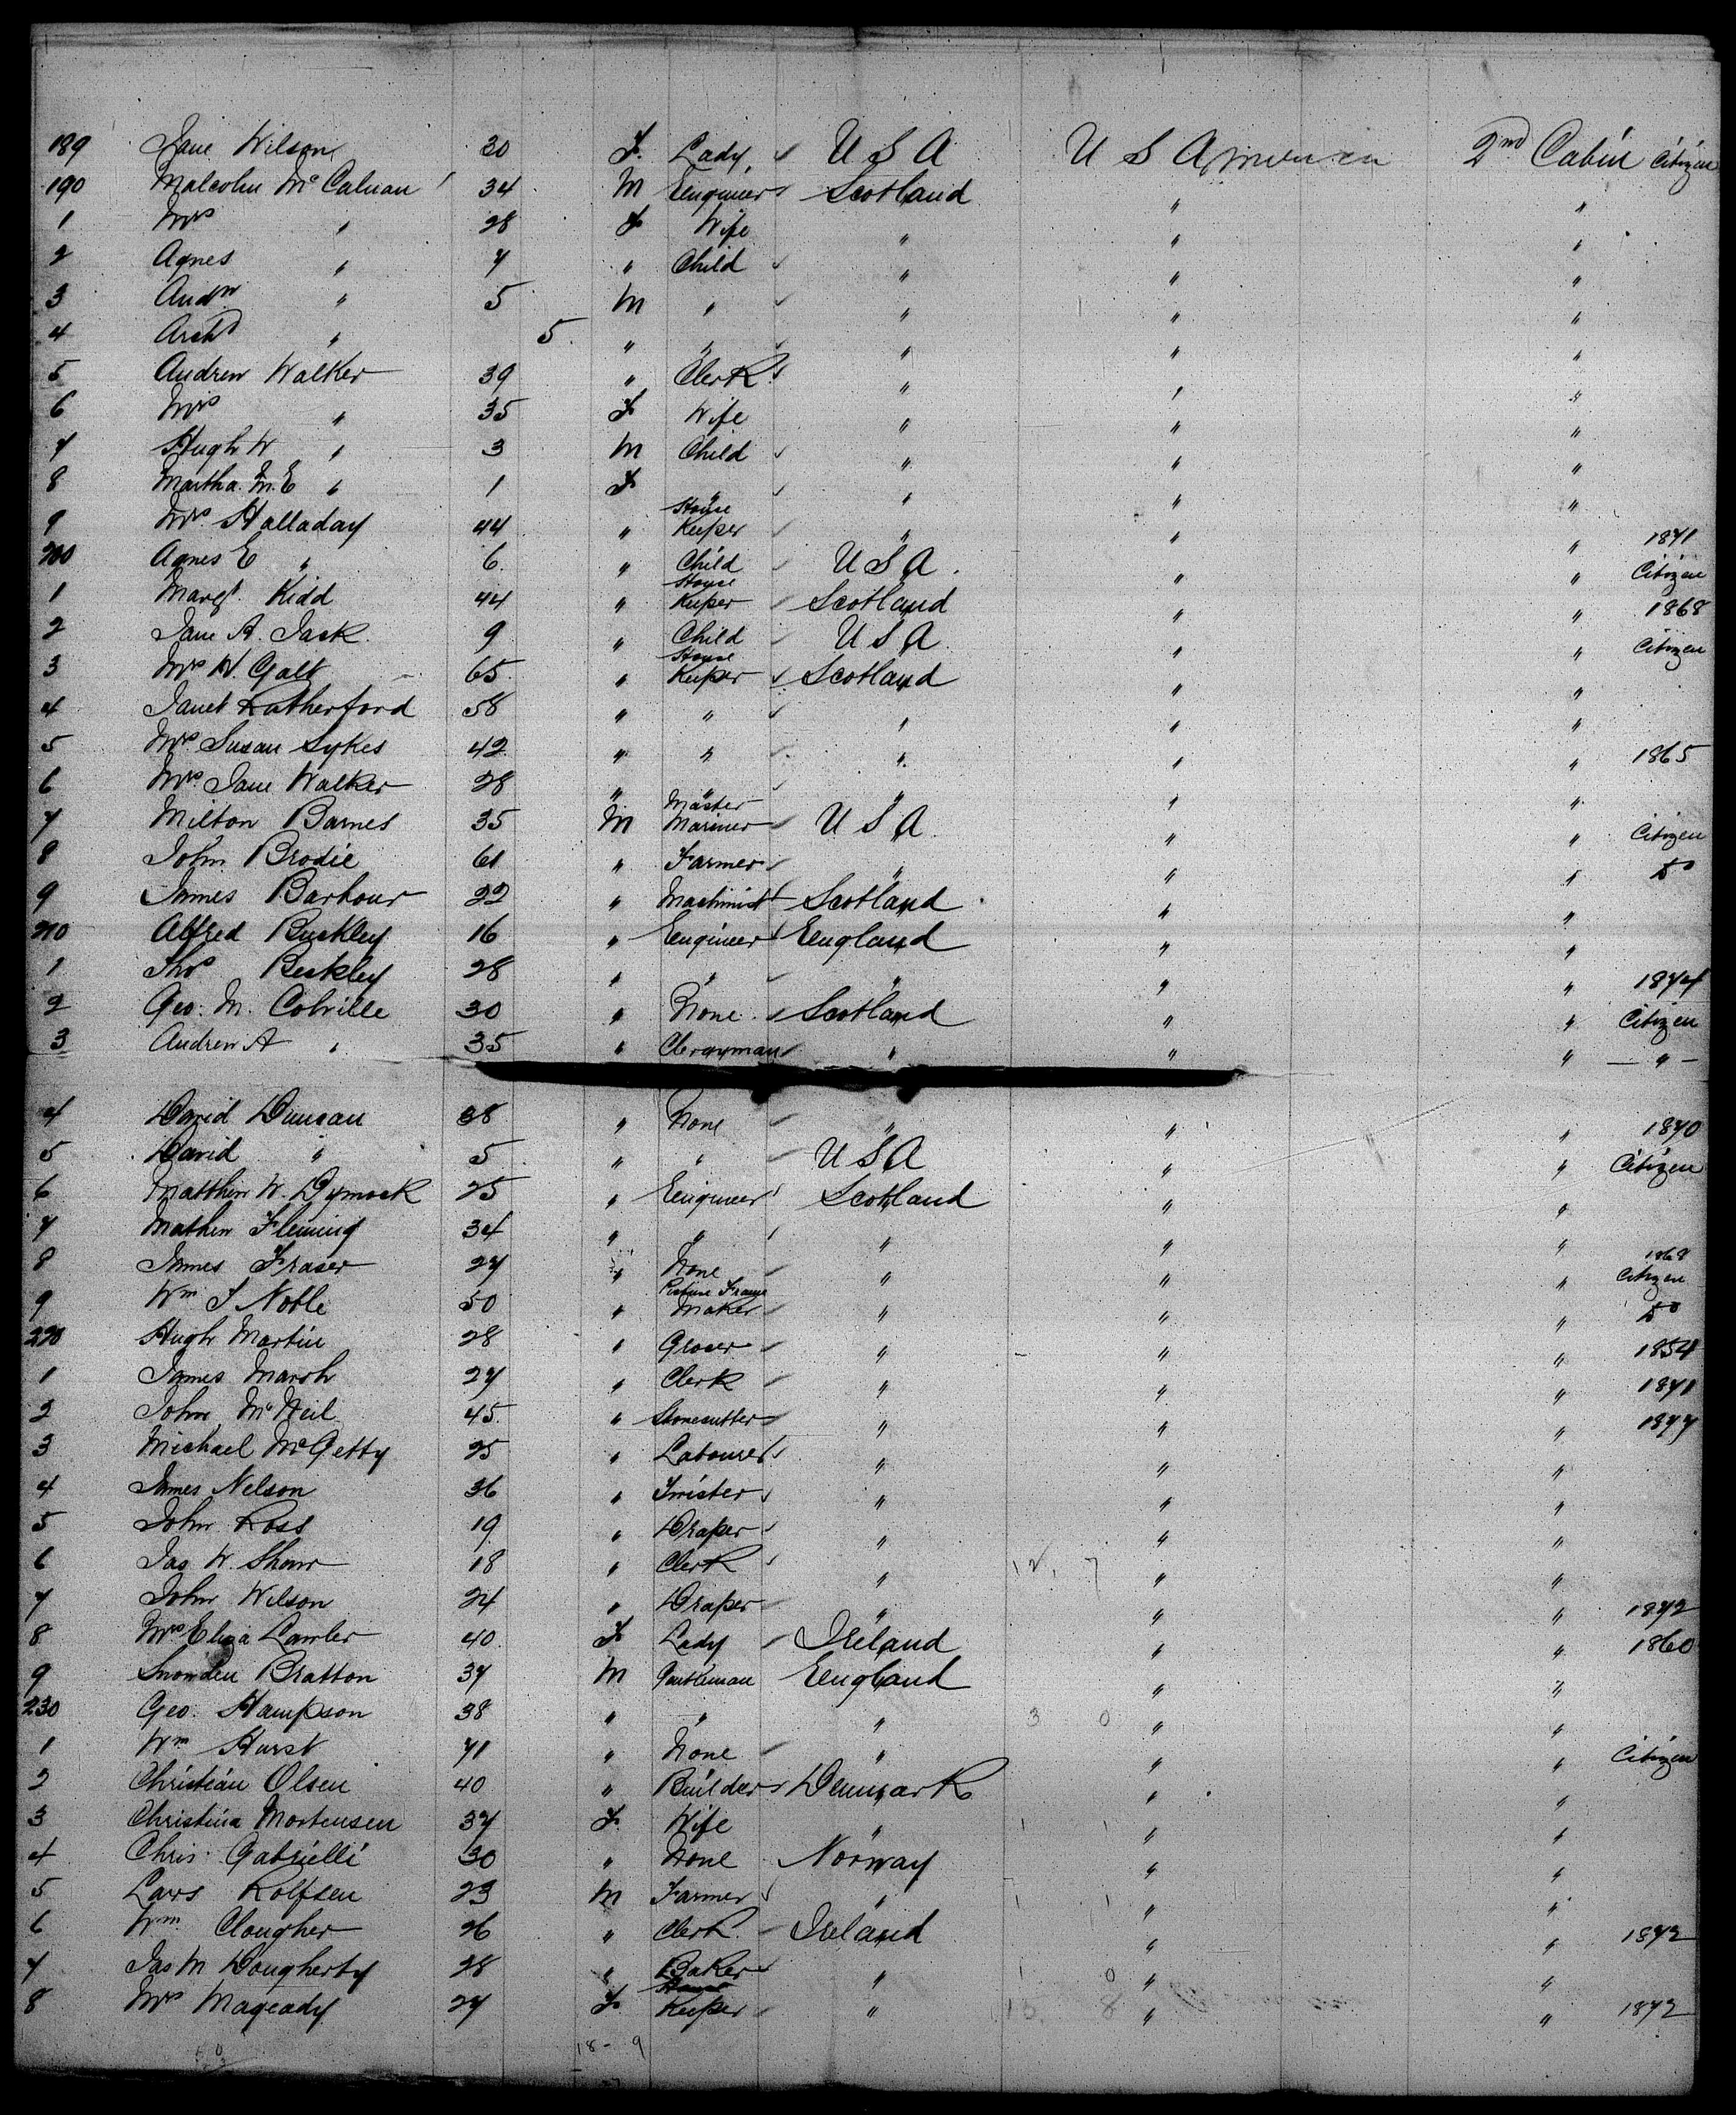 189 Jane Wilson 30 F. Lady U S A U S America 2nd Cabin Citizen
190 Malcolm Mc Calman 34 M Engineer Scotland " "
1 Mrs " 28 F Wife " " "
2 Agnes " 7 " Child " " "
3 Andw " 5 M " " " "
4 Archd " 5. " " " " "
5 Andrew Walker 39 " Clerk " " "
6 Mrs " 35 F Wife " " "
7 Hugh W " 3 M Child " " "
8 Martha. M. E " 1 F " " " "
9 Mrs. Halladay 44 " House Keeper " " " 1871
200 Agnes E " 6. " Child U S A. " " Citizen
1 Margt. Kidd 44 " House Keeper Scotland " " 1868
2 Jane A. Jack 9 " Child U S A " " Citizen
3 Mrs W. Galt 65. " House Keeper Scotland " "
4 Janet Rutherford 58 " " " " "
5 Mrs Susan Sykes 42. " " " " " 1865
6 Mrs. Jane Walker 28 " " " " "
7 Milton Barnes 35 M Master Mariner U S A. " " Citizen
8 John Brodie 61 " Farmer " " " Do
9 James Barbour 22 " Machinist Scotland " "
210 Alfred Buckley 16 " Engineer England " "
1 Thos Beckley 28 " " " " " 1874
2 Geo. M. Colville 30 " None Scotland " " Citizen
3 Andrew A " 35 " Clergyman " " " — " —
4 David Duncan 38 " None " " " 1870
5 David " 5 " " U S A " " Citizen
6 Matthew W. Dymock 25 " Engineer Scotland " "
7 Mathew Fleming 34 " " " " "
8 James Fraser 27 " None " " " 1868 Citizen
9 Wm J Noble 50 " Picture Frame Maker " " " Do
220 Hugh Martin 28 " Grocer " " " 1854
1 James Marsh 27 " Clerk " " " 1871
2 John McNeil 45. " Stonecutter " " " 1877
3 Michael McGetty 25 " Labourer " " "
4 James Nelson 36 " Twister " " "
5 John Ross 19 " Draper " " "
6 Jas W. Shaw 18 " Clerk " " "
7 John Wilson 24 " Draper " " " 1872
8 Mrs Eliza Lawler 40 F Lady Ireland " " 1860
9 Snowden Bratton 37 M Gentleman England " "
230 Geo. Hampson 38 " " " 3 0 " "
1 Wm Hurst 71 " None " " " Citizen
2 Christian Olsen 40 " Builder Denmark " "
3 Christina Mortensen 37 F. Wife " " "
4 Chris. Gabrielli 30 " None Norway " "
5 Lars Rolfsen 23 M Farmer " " "
6 Wm. Clougher 26 " Clerk. Ireland " " 1872
7 Jas M Dougherty 28 " Baker " " "
8 Mrs Mageady 27 F House Keeper " " " 1872
18 - 9